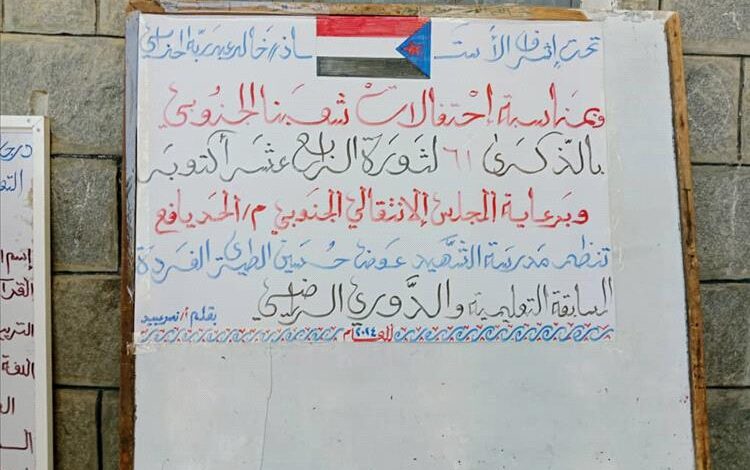 تحت إشراف الأستاذ// خالد عبدربه الحذيفي
وبمناسبة إحتفالات شعبنا الجنوبي
بالذكرى ٦١ لثورة الرابع عشر أكتوبر
وبرعاية المجلس الإنتقالي الجنوبي م/الحد يافع
تنظم مدرسة الشهيد عوض حسين الطيري الفردة
المسابقة التعليمية والدوري الرياضي
بقلم أ/
للعام ٢٠٢٤
إسم
القرآ
التربي
اللغة